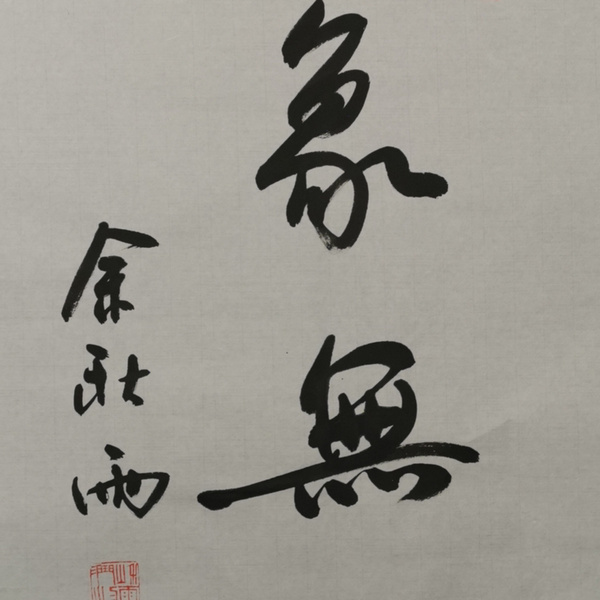 象無
余秋雨